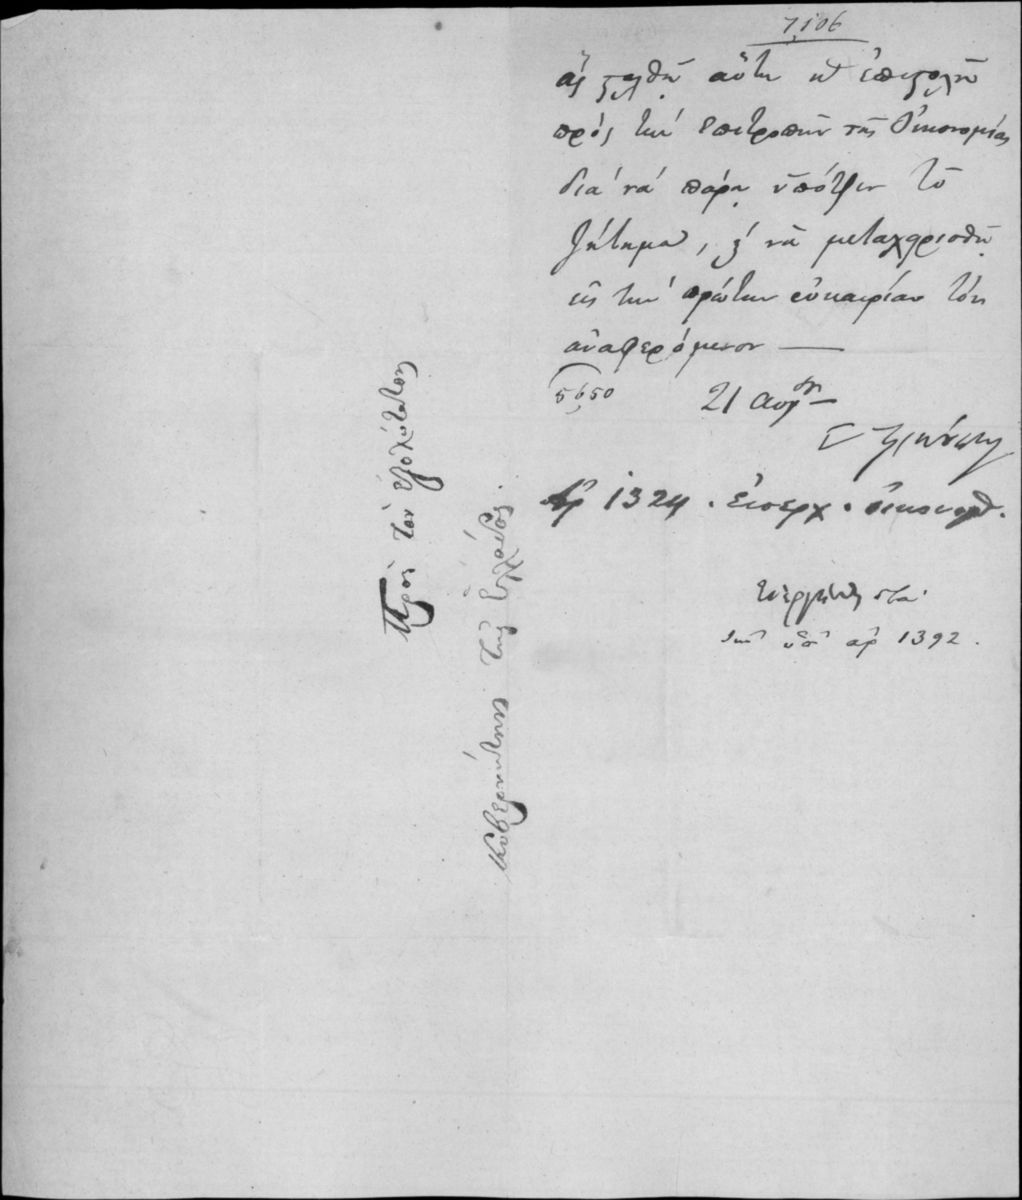 7,106
ἂς σταλθῇ αὕτη ἡ ἐπιστολὴ
πρὸς τὴν ἐπιτροπὴν τῆς Οἰκονομίας
διὰ νὰ πάρῃ ὑπόψιν τὸ
ζήτημα, καὶ νὰ μεταχειρισθῇ
εἰς τὴν πρώτην εὐκαιρίαν τὸν
ἀναφερόμενον —
5650
21
Ἀρ 1324 . εἰσερχ .
ἀρ 1392 .
Πρὸς τὸν ἐξοχώτατον
Κυβερνήτην τῆς Ἑλλάδος.